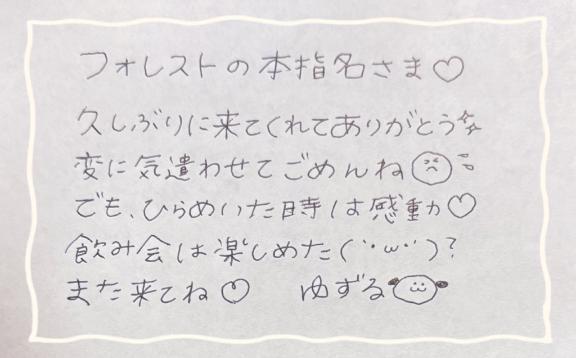 フォレストの本指名さま♡
久しぶりに来てくれてありがとう
変に気遣わせてごめんね
でも、ひらめいた時は感動♡
飲み会は楽しめた(˙ω˙)?
また来てね♡ ゆずる